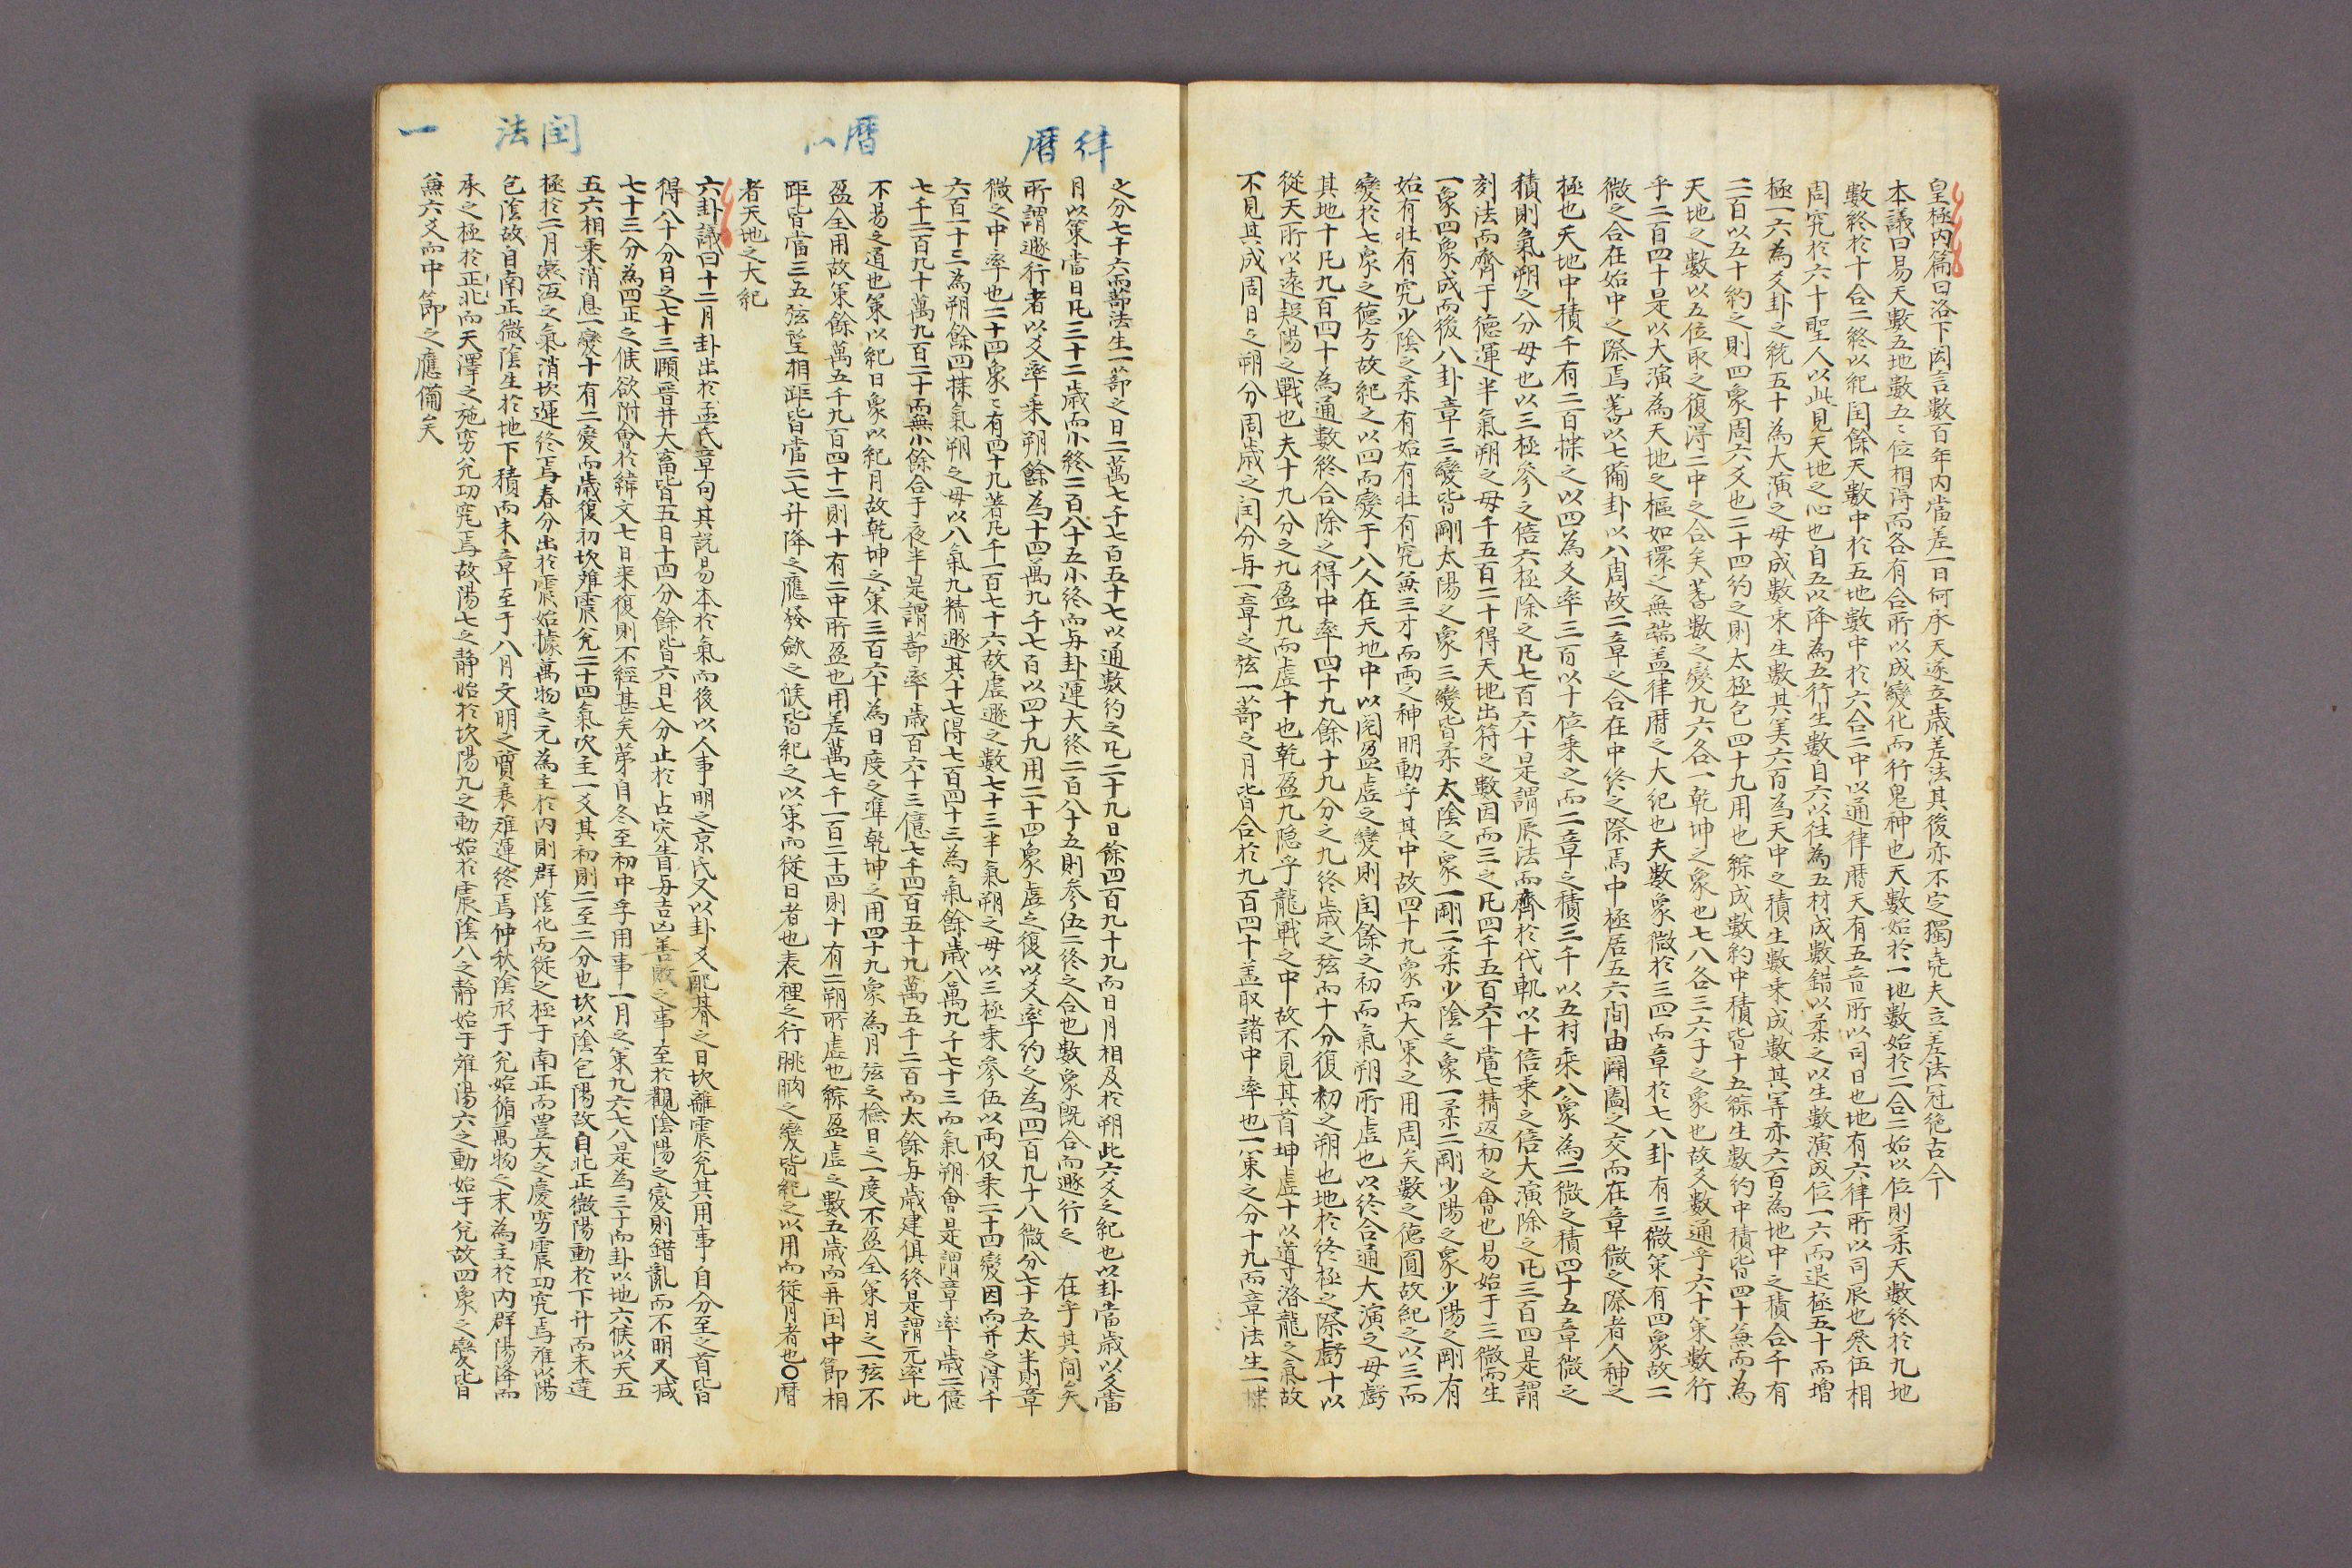 皇極内篇曰洛下閎言數百年内當差一日何承天遂立歳差法其後亦不定獨堯夫立差法冠絶古今
本議曰易天數五地數五〻位相得而各有合所以成變化而行鬼神也天數始於一地數始於二合二始以位則柔天數終於九地
數終於十合二終以紀閏餘天數中於五地數中於六合二中以通律暦天有五音所以司日也地有六律所以司辰也叅伍相
周究於六十聖人以此見天地之心也自五以降為五行生數自六以往為五材成數錯以柔之以生數演成位一六而退極五十而増
極一六為爻卦之統五十為大演之母成數乘生數其筭六百為天中之積生數乘成數其筭亦六百為地中之積合千有
二百以五十約之則四象周六爻也二十四約之則太極包四十九用也綜成數約中積皆十五綜生數約中積皆四十兼而為
天地之數以五位取之復得二中之合矣蓍數之變九六各一乾坤之象也七八各三六子之象也故爻數通乎六十策數行
乎二百四十是以大演為天地之樞如環之無端盖律暦之大紀也夫數象微於三四而章於七八卦有三微策有四象故二
微之合在始中之際焉蓍以七備卦以八周故二章之合在中終之際焉中極居五六間由闢闔之交而在章微之際者人神之
極也天地中積千有二百揲之以四為爻率三百以十位乘之而二章之積三千以五材乘八象為二微之積四十五章微之
積則氣朔之分母也以三極參之倍六極除之凡七百六十是謂辰法而齊於代軌以十倍乘之倍大演除之凡三百四是謂
刻法而齊于德運半氣朔之母千五百二十得天地出符之數因而三之凡四千五百六十當七精返初之會也易始于三微而生
一象四象成而後八卦章三變皆剛太陽之象三變皆柔太陰之象一剛二柔少陰之象一柔二剛少陽之象少陽之剛有
始有壮有究少陰之柔有始有壮有究兼三才而兩之神明動乎其中故四十九象而大策之用周矣數之德圓故紀之以三而
變於七象之德方故紀之以四而變于八人在天地中以閲盈虚之變則閏餘之初而氣朔所虚也以終合通大演之母虧
其地十凡九百四十為通數終合除之得中率四十九餘十九分之九終歳之弦而十分復初之朔也地於終極之際虧十以
從天所以遠疑陽之戰也夫十九分之九盈九而虚十也乾盈九隠乎龍戰之中故不見其首坤虚十以導洛龍之氣故
不見其成周日之朔分周歳之閏分与一章之弦一蔀之月皆合於九百四十盖取諸中率也一策之分十九而章法生一揲
律暦
之分七十六而蔀法生一蔀之日二萬七千七百五十七以通數約之凡二十九日餘四百九十九而日月相及於朔此六爻之紀也以卦當歳以爻當
月以策當日凡三十二歳而小終二百八十五小終而与卦運大終二百八十五則参伍二終之合也數象既合而遯行之 在乎其間矣
所謂遯行者以爻率乘朔餘為十四萬九千七百以四十九用二十四象虚之復以爻率約之為四百九十八微分七十五太半則章
微之中率也二十四象〻有四十九蓍凡千一百七十六故虚遯之數七十三半氣朔之母以三極乘參伍以兩仪乘二十四變因而并之得千
六百一十三為朔餘四揲氣朔之母以八氣九精遯其十七得七百四十三為氣餘歳八萬九千七十三而氣朔會是謂章率歳二億
七千二百九十萬九百二十而無小餘合于夜半是謂蔀率歳百六十三億七千四百五十九萬五千二百而太餘与歳建俱終是謂元率此
不易之道也策以紀日象以紀月故乾坤之策三百六十為日度之準乾坤之用四十九象為月弦之檢日之一度不盈全策月之一弦不
盈全用故策餘萬五千九百四十二則十有二中所盈也用差萬七千一百二十四則十有二朔所虚也綜盈虚之數五歳而再閏中節相
距皆當三五弦望相距皆當二七升降之應發歛之候皆紀之以策而従日者也表裡之行朓朒之變皆紀之以用而従月者也〇暦
暦以
者天地之大紀
六卦議曰十二月卦出於孟氏章句其説易本於氣而後以人事明之京氏又以卦爻配朞之日坎離震兊其用事自分至之首皆
得八十分日之七十三頤晋井大畜皆五日十四分餘皆六日七分止於占灾眚与吉凶善敗之事至於觀陰陽之變則錯亂而不明又減
七十三分為四正之候欲附會於緯文七日来復則不經甚矣苐自冬至初中孚用事一月之策九六七八是為三十而卦以地六候以天五
五六相乘消息一變十有二變而歳復初坎離震兊二十四氣次主一爻其初則二至二分也坎以陰包陽故自北正微陽動於下升而未達
閏法
極於二月凝沍之氣消坎運終焉春分出於震始據萬物之元為主於内則群陰化而従之極于南正而豊大之慶窮震功究焉離以陽
包陰故自南正微陰生於地下積而未章至于八月文明之質衰離運終焉仲秋陰形于兊始循萬物之末為主於内群陽降而
承之極於正北而天澤之施窮兊功究焉故陽七之静始於坎陽九之動始於震陰八之静始于離陽六之動始于兊故四象之變皆
一
兼六爻而中節之應備矣